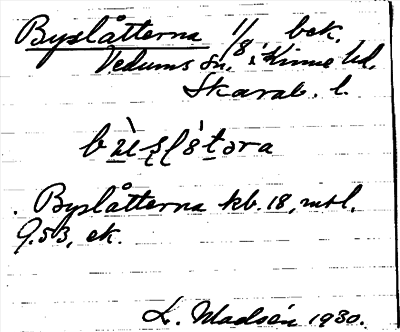 Byslåtterna 1/8 bek.
Vedums sn, i Kinne hd,
Skarab. l.
Byslåtterna kb. 18, mtl.
9.53, ek.
L. Madsén 1930.